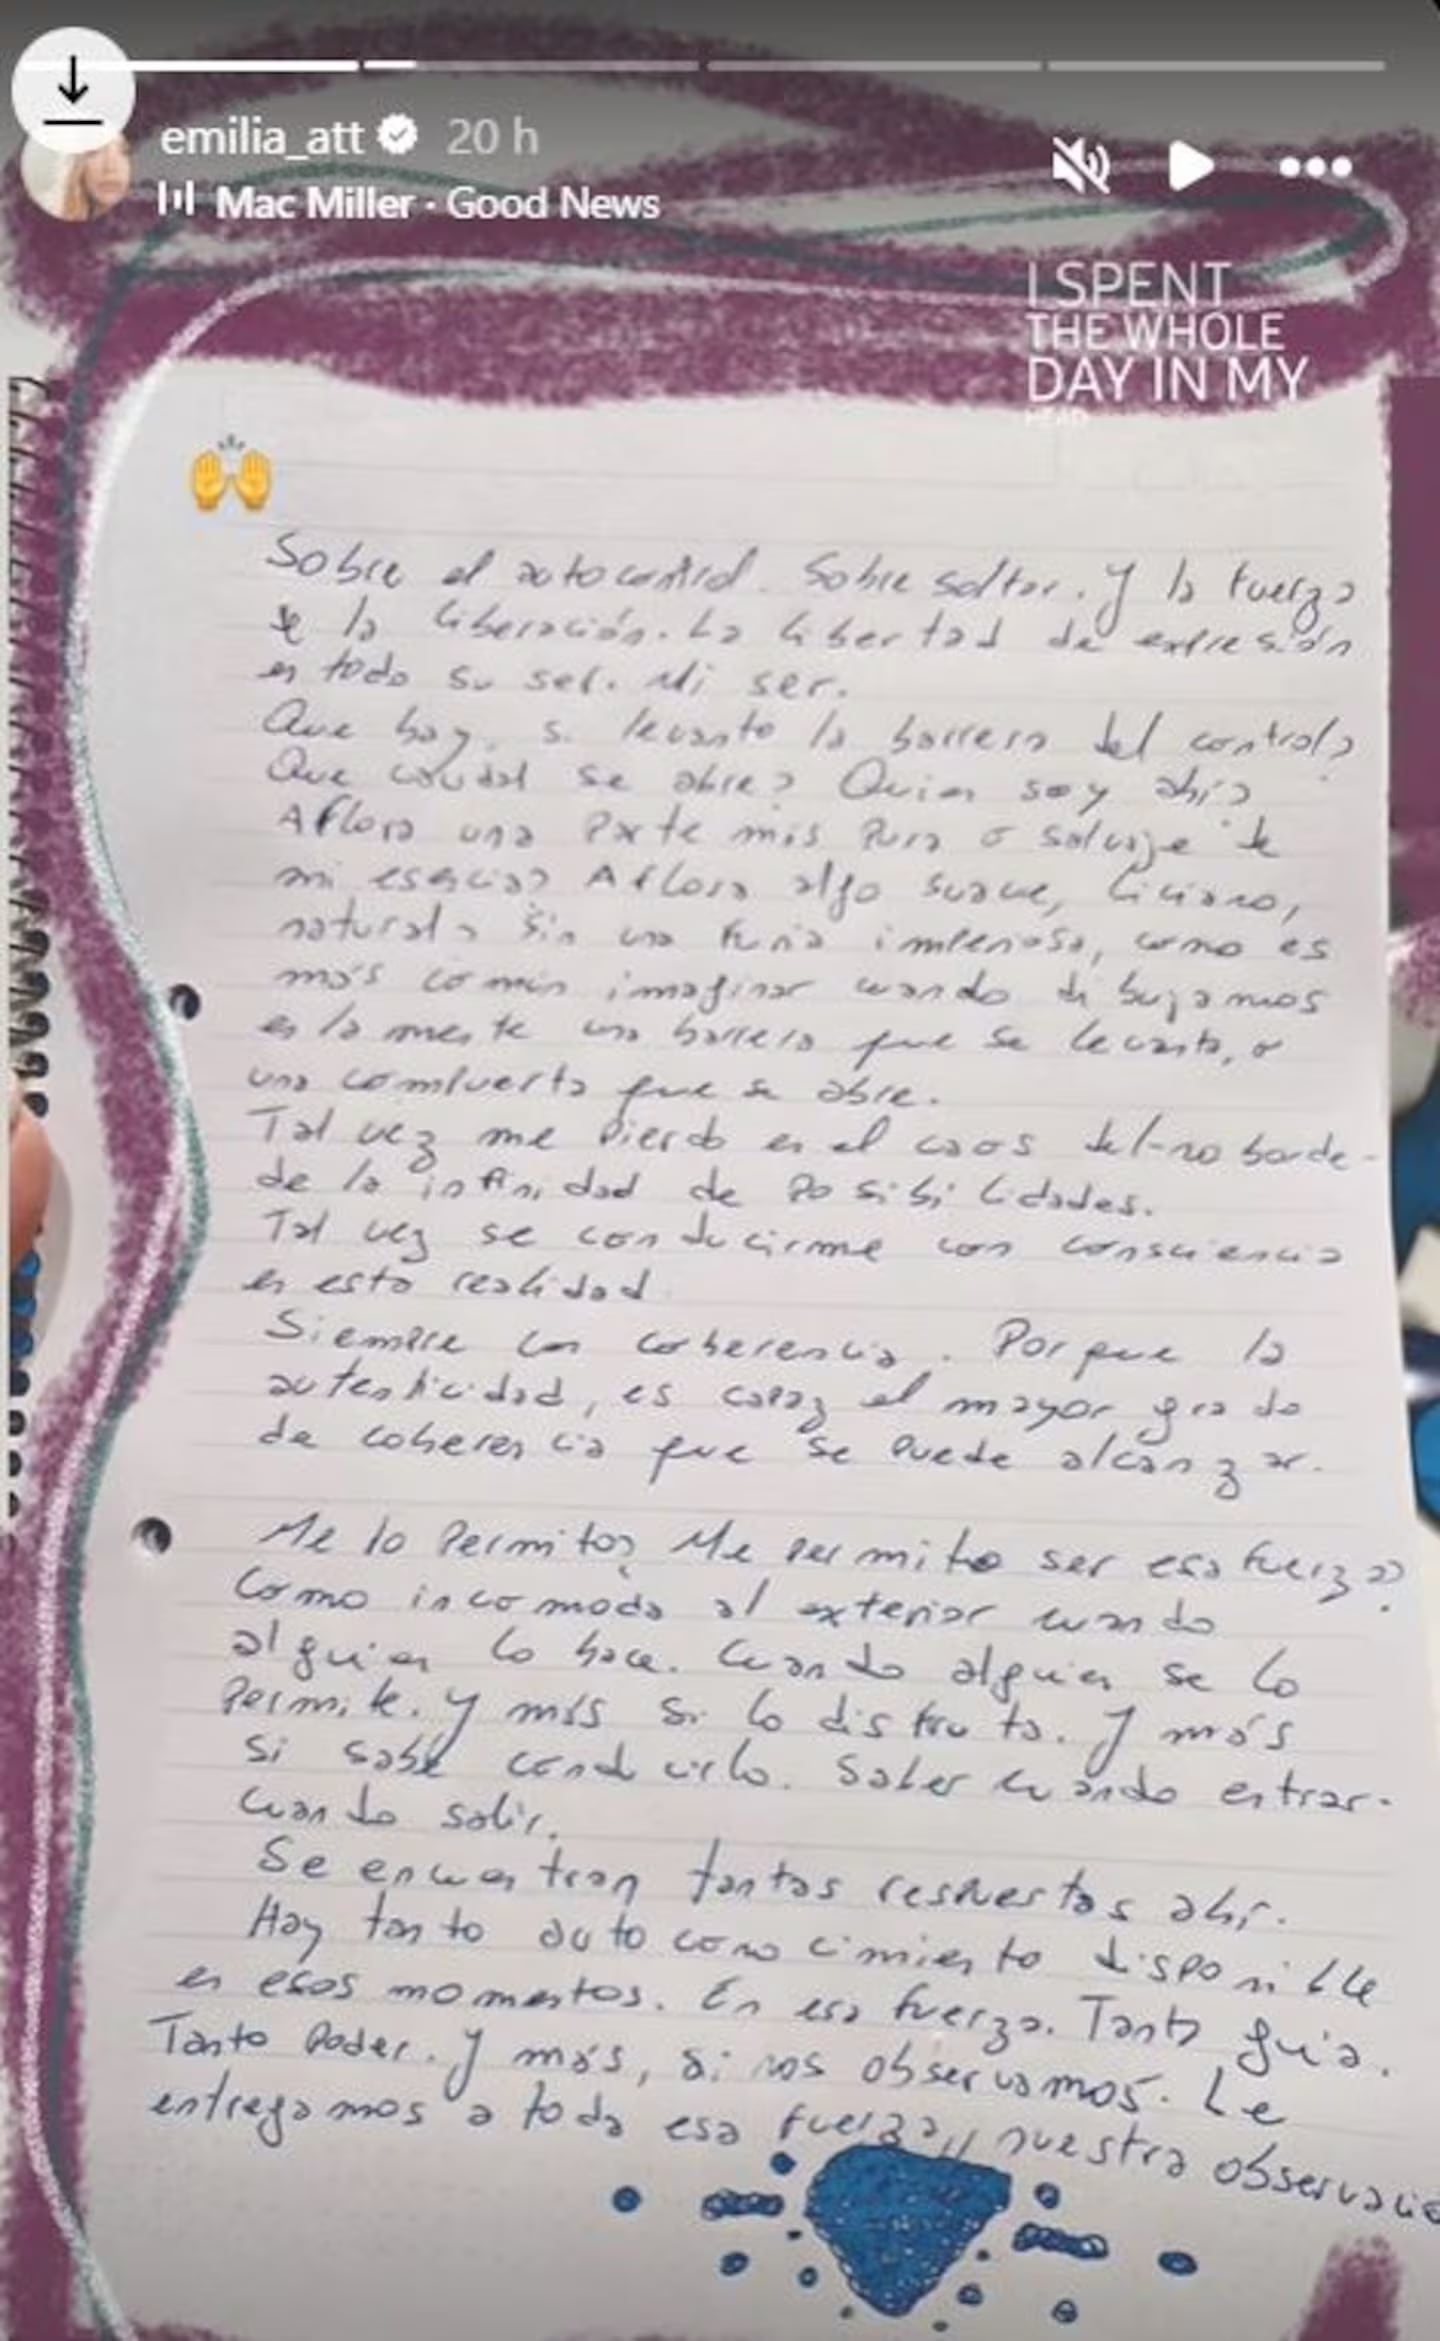 emilia_att 20 h
Mac Miller · Good News
I SPENT
THE WHOLE
DAY IN MY
HEAD
Sobre el autocontrol. Sobre soltar. Y la fuerza
de la liberación. La libertad de expresión
en todo su ser. Mi ser.
Que hay, si levanto la barrera del control?
Que caudal se abre? Quien soy ahí?
Aflora una parte más pura o salvaje de
mi esencia? Aflora algo suave, liviano,
natural? Sin una furia impetuosa, como es
más común imaginar cuando dibujamos
en la mente una barrera que se levanta, o
una compuerta que se abre.
Tal vez me pierdo en el caos del-no borde-
de la infinidad de posibilidades.
Tal vez se conducirme con consciencia
en esta realidad.
Siempre con coherencia. Porque la
autenticidad, es capaz el mayor grado
de coherencia que se puede alcanzar.
Me lo permito? Me permito ser esa fuerza?
Como incomoda al exterior cuando
alguien lo hace. Cuando alguien se lo
permite. Y más si lo disfruta. Y más
si sabe conducirlo. Saber cuando entrar.
cuando salir.
Se encuentran tantas respuestas ahí.
Hay tanto autoconocimiento disponible
en esos momentos. En esa fuerza. Tanta guía.
Tanto poder. Y más, si nos observamos. Le
entregamos a toda esa fuerza, nuestra observació